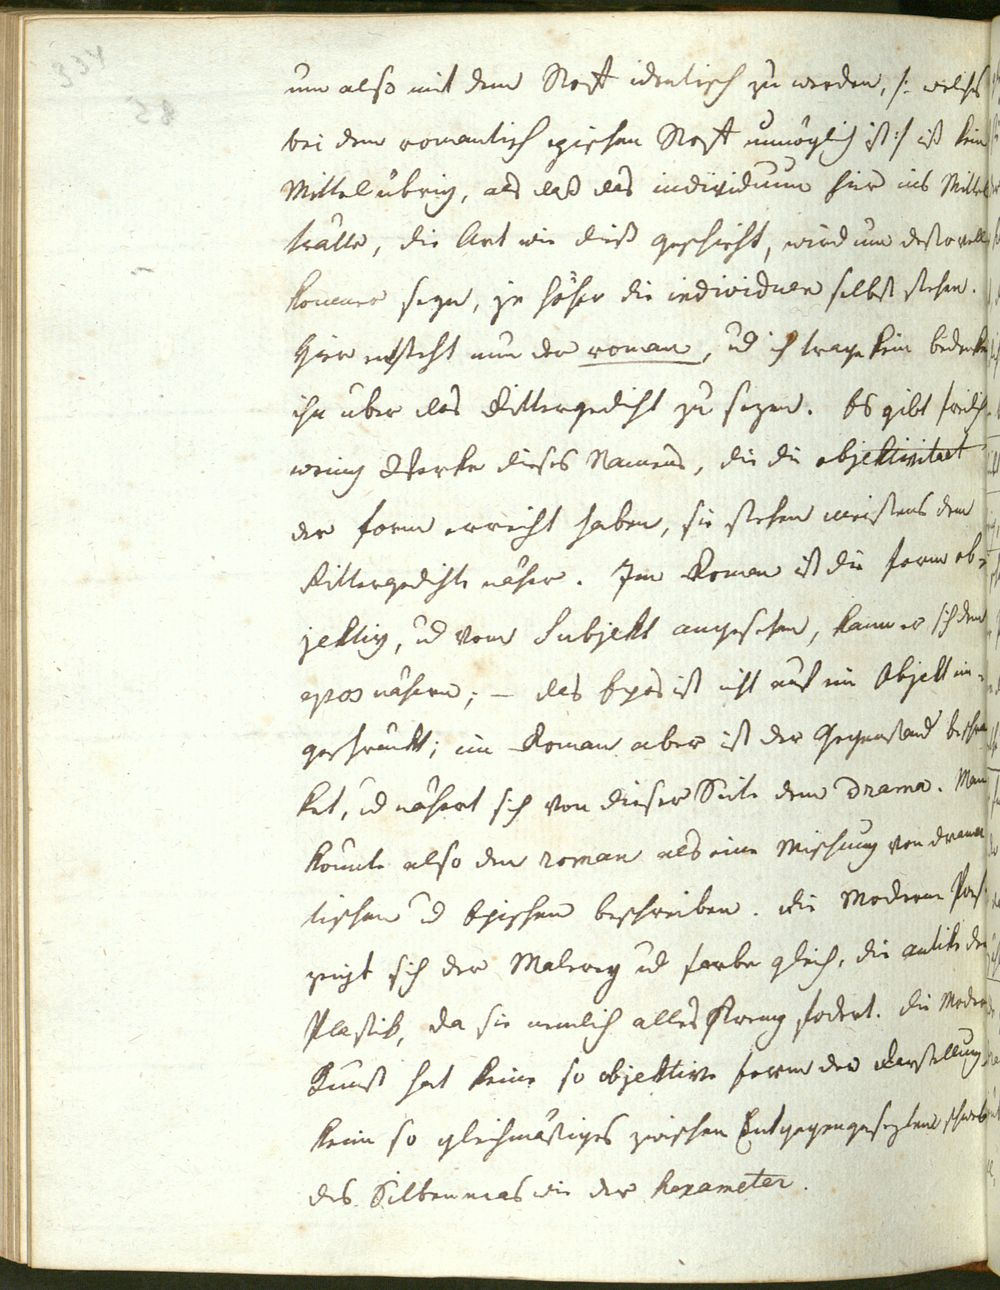 um also mit dem Stoff identisch zu werden, /: welches
bei dem romantisch epischen Stoff unmöglich ist :/ ist kein
Mittel übrig, als daß das individuum hier ins Mittel
trätte, die Art wie dieß geschieht, wird um desto voll
komner seyn, je höher die individuen selbst stehen.
Hier entsteht nun der roman, ud ich trage kein bedenken
ihn über das Rittergedicht zu sezen. Es gibt freilich
wenig Werke dieses Namens, die die objektivitaet
der form erreicht haben, sie stehen meistens dem
Rittergedichte näher. Im Roman ist die form ob-
jektiv, ud vom Subjekt angesehen, kann er sich dem
epos nähern; – das Epos ist nicht auf ein Objekt ein-
geschränkt; im Roman aber ist der Gegenstand beschrän
ket, ud nähert sich von dieser Seite dem Drama. Man
könnte also den roman als eine Mischung von drama
tischen ud Epischen beschreiben. die Moderne Poes.
zeigt sich der Malerey ud farbe gleich, die antike der
Plastik, da sie nemlich alles streng fodert. die Moderne
Kunst hat keine so objektive form der Darstellung
kein so gleichmäßiges zwischen Entgegengesezten schweb
des Silbenmas wie der hexameter.